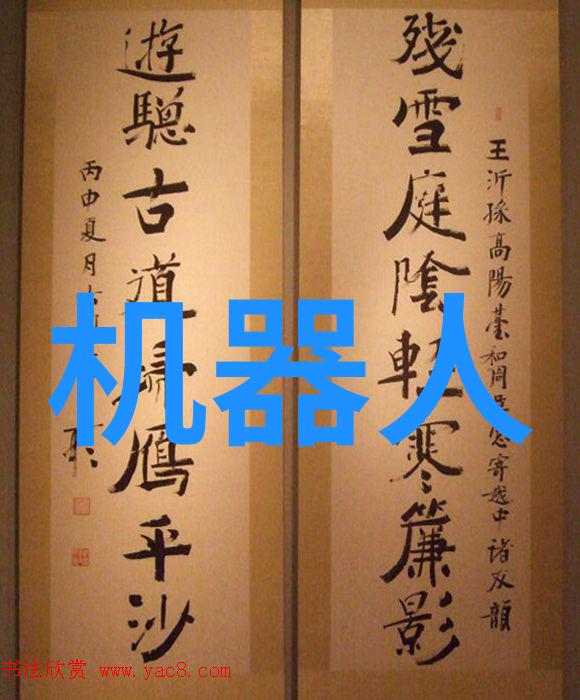 殘雪庭陰輕寒簾影
王沂孫高陽臺和周草窓寄越中諸友韻
遊驄古道歸鴈平沙
丙申夏月
机器人
书法欣赏 www.yac8.com